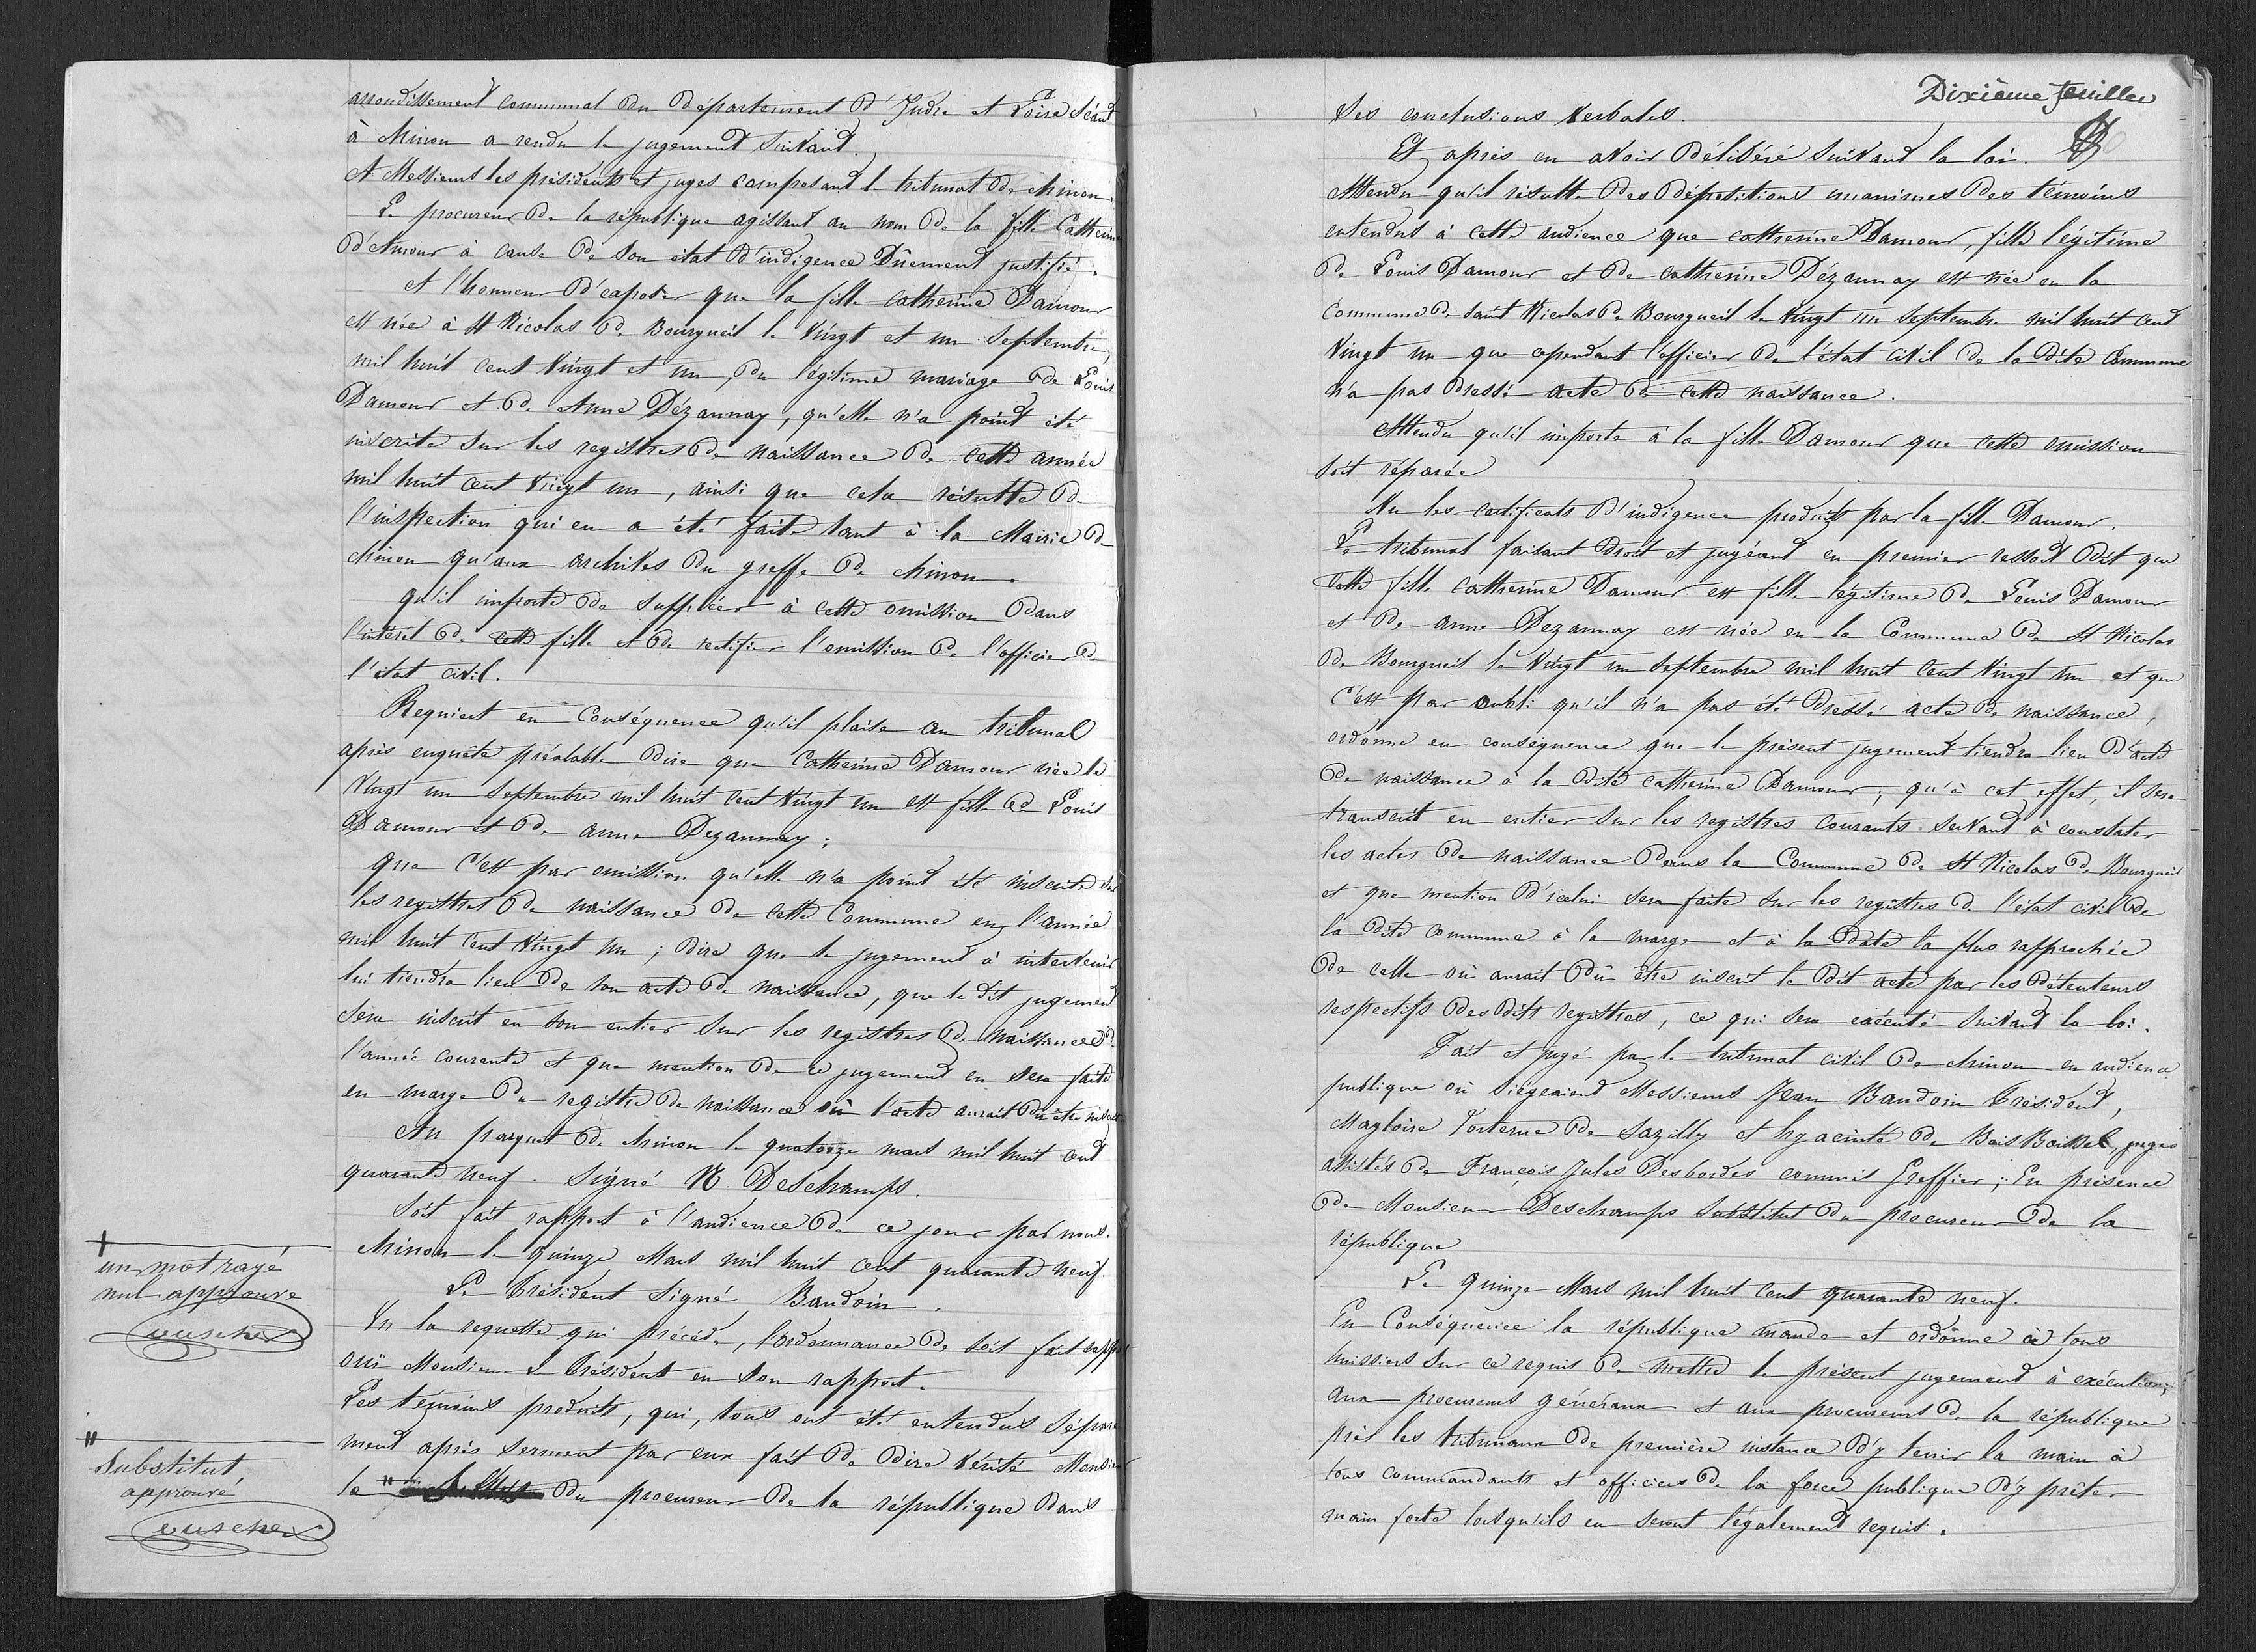 arrondissement communal du département d'Indre et Loire séant
à Chinon a rendu le jugement suivant.
A Messieurs les présidents et juges composant le tribunal de Chinon.
Le procureur de la république agissant au nom de la fille Catherine
d'Amour à cause de son état d'indigence Dûement justifié.
et l'honneur d'exposer que la fille Catherine Damour
est née à St Nicolas de Bourgueil le vingt et un septembre,
mil huit cent vingt et un, du légitime mariage de Louis
Damour et de Anne Dézaunay, qu'elle n'a point été
inscrite sur les registres de naissance de cette année
mil huit cent vingt un, ainsi que cela résulte de
l'inspection qui en a été faite tant à la Mairie de
Chinon qu'aux archives du greffe de Chinon.
qu'il importe de suppléer à cette omission dans
l'intérêt de cette fille et de rectifier l'omission de l'officier de
l'état civil.
Requiert en Conséquence qu'il plaise au tribunal
après enquête préalable dire que Catherine Damour née le
vingt un septembre mil huit cent vingt un est fille de Louis
Damour et de anne Dezaunay;
que c'est par omission qu'elle n'a point été inscrite sur
les registres de naissance de cette Commune en l'année
mil huit cent vingt un; dire que le jugement à intervenir
lui tiendra lieu de son acte de naissance, que le dit jugement
sera inscrit en son entier sur les registres de naissance de
l'année courante et que mention de ce jugement en sera faite
en marge du registre de naissance où l'acte aurait dû être inscrit
Au parquet de Chinon le quatorze mars mil huit cent
quarante neuf. Signé N. Deschamps.
Soit fait rapport à l'audience de ce jour par nous.
Chinon le quinze Mars mil huit cent quarante neuf.
Le Président signé Baudoin.
Vu la requette qui précède, l'ordonnance de soit fait rapport
ouï Monsieur le Président en son rapport.
Les témoins produits, qui, tous ont été entendus séparé
ment après serment par eux fait de dire vérité Monsieur
le du procureur de la république dans
un mot rayé
nul approuvé
Substitut,
approuvé
Dixième feuillet
ses conclusions verbales.
Et après en avoir délibéré suivant la loi.
Attendu qu'il résulte des dépositions unanimes des témoins
entendus à cette audience que catherine Damour, fille légitime
de Louis Damour et de catherine Dézaunay est née en la
Commune de saint Nicolas de Bourgueil le vingt un septembre mil huit cent
vingt un que cependant l'officier de l'état civil de la dite Commune
n'a pas dressé acte de cette naissance.
Attendu qu'il importe à la fille Damour que cette omission
soit réparée
Vu les certificats d'indigence produits par la fille Damour.
Le tribunal faisant droit et jugeant en premier ressort dit que
cette fille catherine Damour est fille légitime de Louis Damour
et de anne Dezaunay est née en la Commune de St Nicolas
de Bourgueil le vingt un septembre mil huit cent vingt un et que
c'est par oubli qu'il n'a pas été dressé acte de naissance,
ordonne en conséquence que le présent jugement tiendra lieu d'acte
de naissance à la dite catherine Damour; qu'à cet effet, il sera
transcrit en entier sur les registres courants servant à constater
les actes de naissance dans la Commune de St Nicolas de Bourgueil
et que mention d'icelui sera faite sur les registres de l'état civil de
la dite commune à la marge et à la date la plus rapprochée
de celle où aurait dû être inscrit le dit acte par les détenteurs
respectifs des dits registres, ce qui sera exécuté suivant la loi.
Fait et jugé par le tribunal civil de Chinon en audience
publique où siégeaient Messieurs Jean Baudoin Président,
Magloire Torterue de Sazilly et hyacinte de Bois Boissel, juges
assistés de François Jules Desbordes commis Greffier; En présence
de Monsieur Deschamps substitut du procureur de la
république
Le quinze Mars mil huit cent quarante neuf.
En Conséquence la république mande et ordonne à tous
huissiers sur ce requis de mettre le présent jugement à exécution;
aux procureurs généraux et aux procureurs de la république
près les tribunaux de première instance d'y tenir la main à
tous commandants et officiers de la force publique d'y prêter
main forte lorsqu'ils en seront légalement requis.